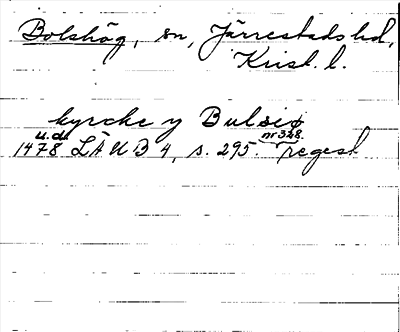 Bolshög, sn, Järrestads hd,
Krist. l.
kyrcke y Bulsiø
u.d. nr 328.
1478 LÄUB 4, s. 295. Regest